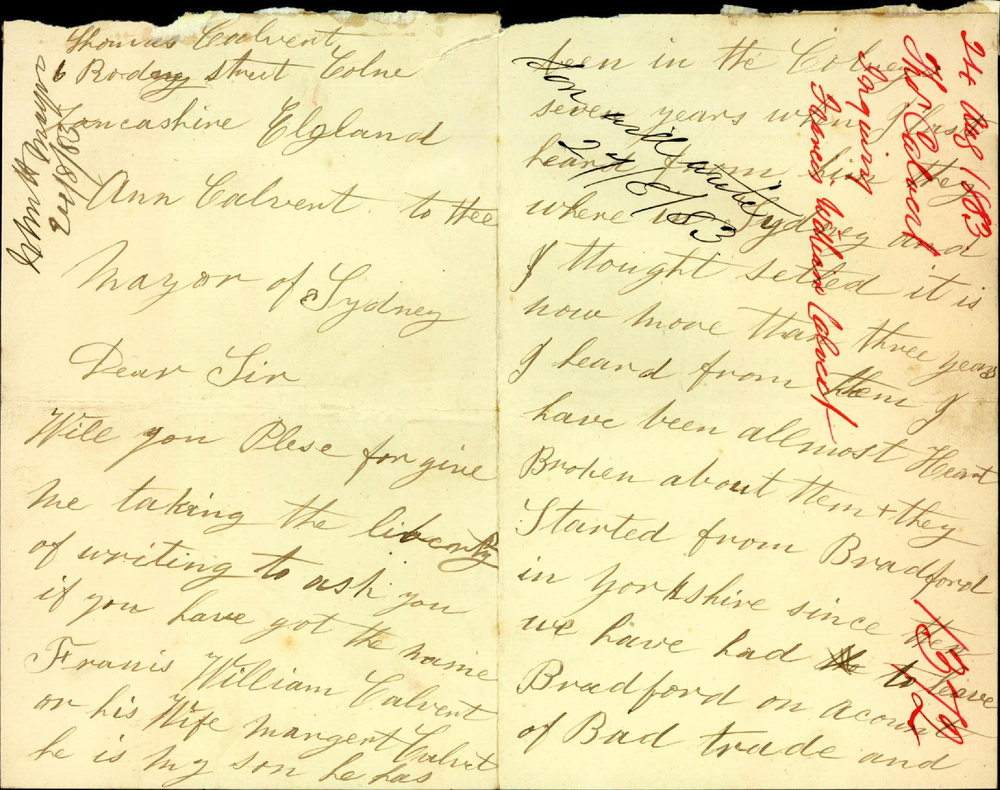 Thomas Calvert
6 Rodney street Colne
Lancashire Elgland
Ann Calvert to thee
Mayor of Sydney
Dear Sir
Will you Plese forgive
me taking the liberty
of writing to ask you
if you have got the name
Franis William Calvert
or his Wife margert Calvert
he is my son he has
John H Mayor
24/8/83
been in the Colney
seven years when I last
heard from him they
where in Sydney and
I thought settled it is
now more than three years
I heard from them I
have been allmost Heart
Broken about them + they
Started from Bradford
in Yorkshire since then
we have had to leave
Bradford on acount
of Bad trade and
24/8/83
24 Aug 1883
Thos Calvert
Inquiring
Francis William Calvert